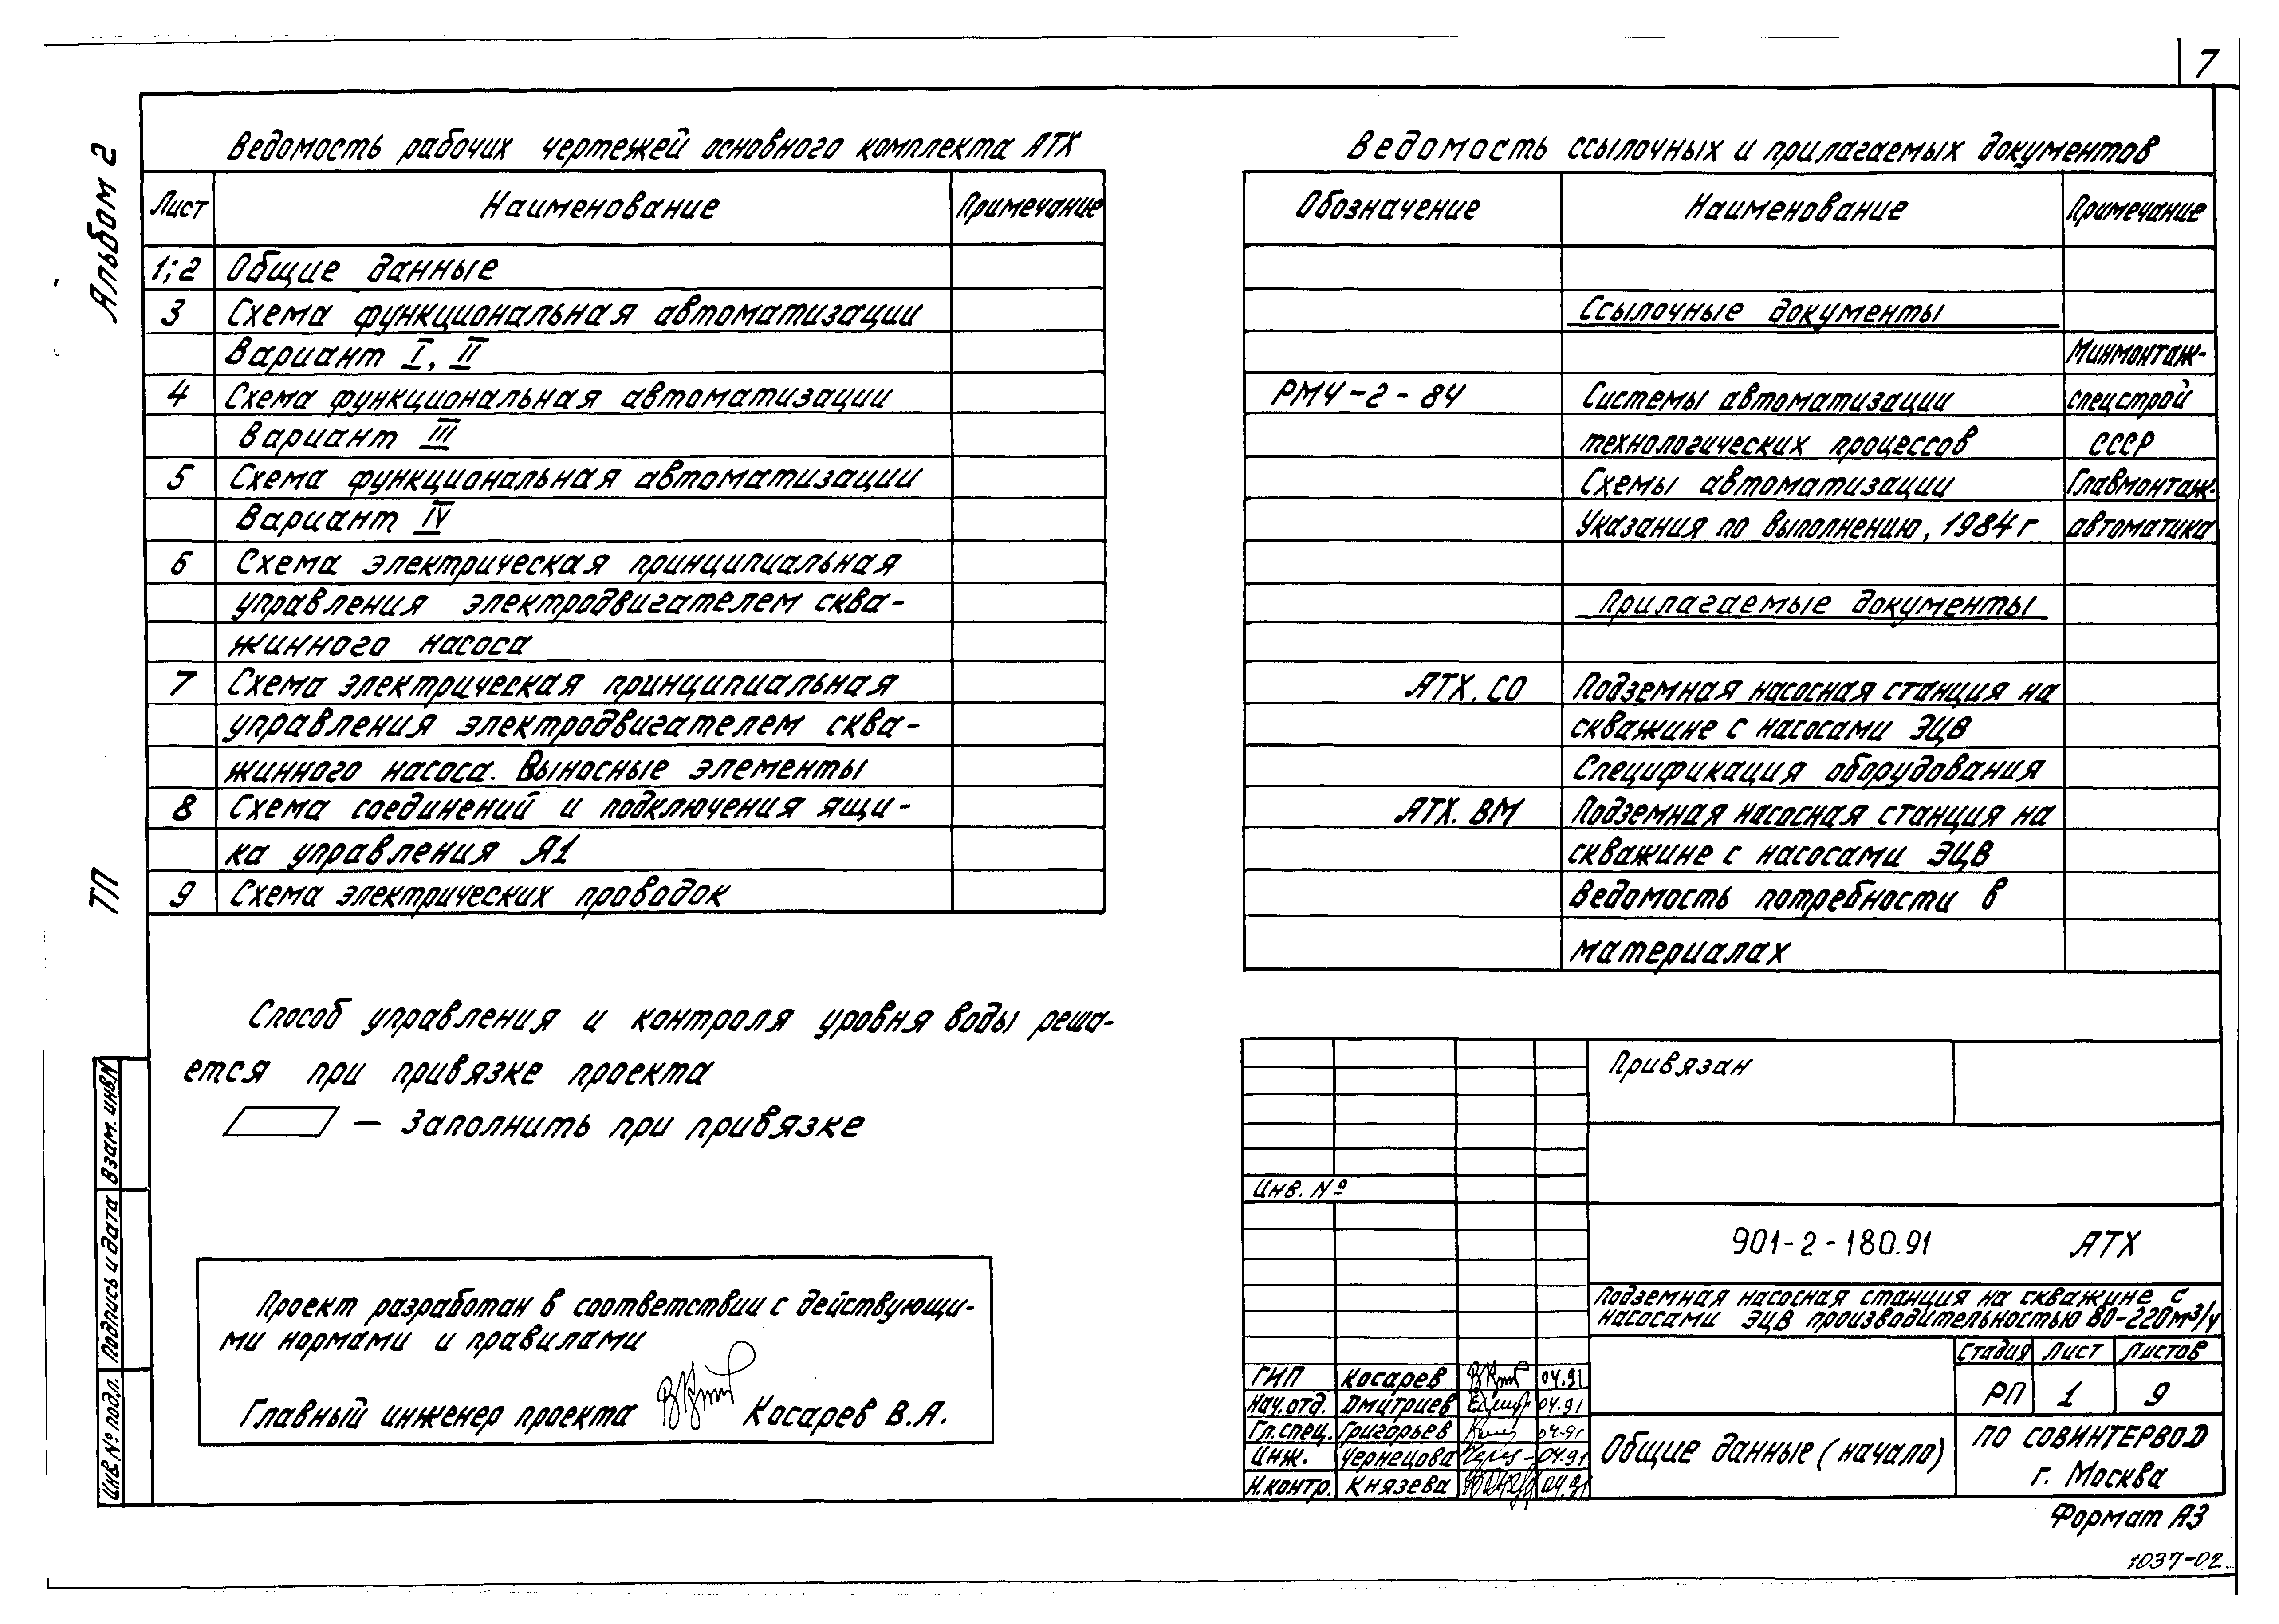 7
Альбом 2
ТП
Ведомость рабочих чертежей основного комплекта АТХ
Лист Наименование Примечание
1;2 Общие данные
3 Схема функциональная автоматизации
Вариант I, II
4 Схема функциональная автоматизации
Вариант III
5 Схема функциональная автоматизации
Вариант IV
6 Схема электрическая принципиальная
управления электродвигателем сква-
жинного насоса
7 Схема электрическая принципиальная
управления электродвигателем сква-
жинного насоса. Выносные элементы
8 Схема соединений и подключения ящи-
ка управления Я1
9 Схема электрических проводок
Способ управления и контроля уровня воды реша-
ется при привязке проекта
— Заполнить при привязке
Проект разработан в соответствии с действующи-
ми нормами и правилами
Главный инженер проекта Косарев В.А.
Ведомость ссылочных и прилагаемых документов
Обозначение Наименование Примечание
Ссылочные документы
Минмонтаж-
РМ4-2-84 Системы автоматизации спецстрой
технологических процессов СССР
Схемы автоматизации Главмонтаж-
Указания по выполнению, 1984г автоматика
Прилагаемые документы
АТХ.СО Подземная насосная станция на
скважине с насосами ЭЦВ
Спецификация оборудования
АТХ.ВМ Подземная насосная станция на
скважине с насосами ЭЦВ
Ведомость потребности в
материалах
Привязан
Инв. №
901-2-180.91 АТХ
Подземная насосная станция на скважине с
насосами ЭЦВ производительностью 80-220м3/ч
Стадия Лист Листов
РП 1 9
ГИП Косарев 04.91
Нач.отд. Дмитриев 04.91
Гл.спец. Григорьев 04.91
Инж. Чернецова 04.91
Н.контр. Князева 04.91
Общие данные (начало)
ПО СОВИНТЕРВОД
г. Москва
Формат А3
1037-02
Взам. инв.№
Подпись и дата
Инв.№ подл.